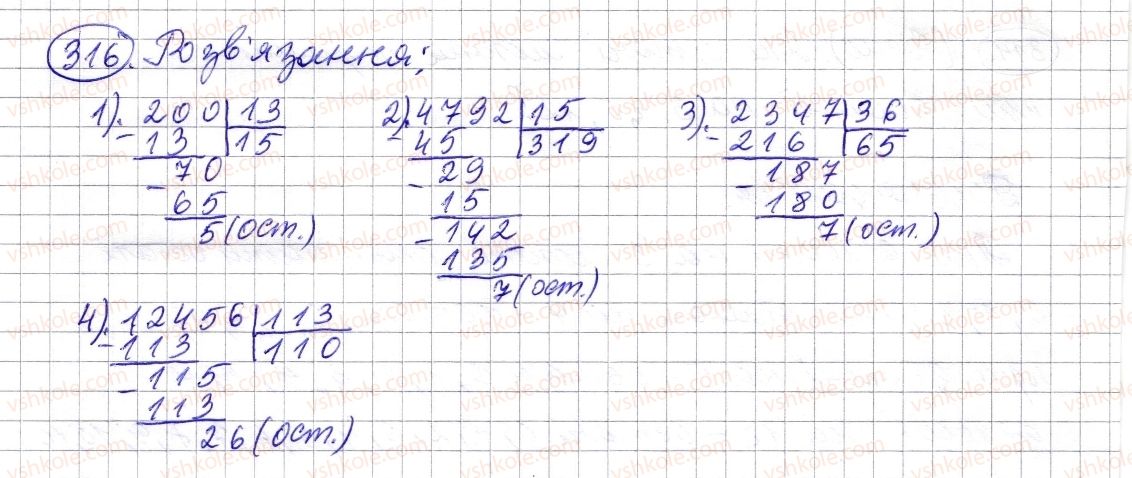 316. Розв'язання:
1). 200 | 13
- 13 | 15
- 70
65
5 (ост.)
2). 4792 | 15
- 45 | 319
- 29
15
- 142
135
7 (ост.)
3). 2347 | 36
- 216 | 65
- 187
180
7 (ост.)
4). 12456 | 113
- 113 | 110
- 115
113
26 (ост.)
vshkole.com